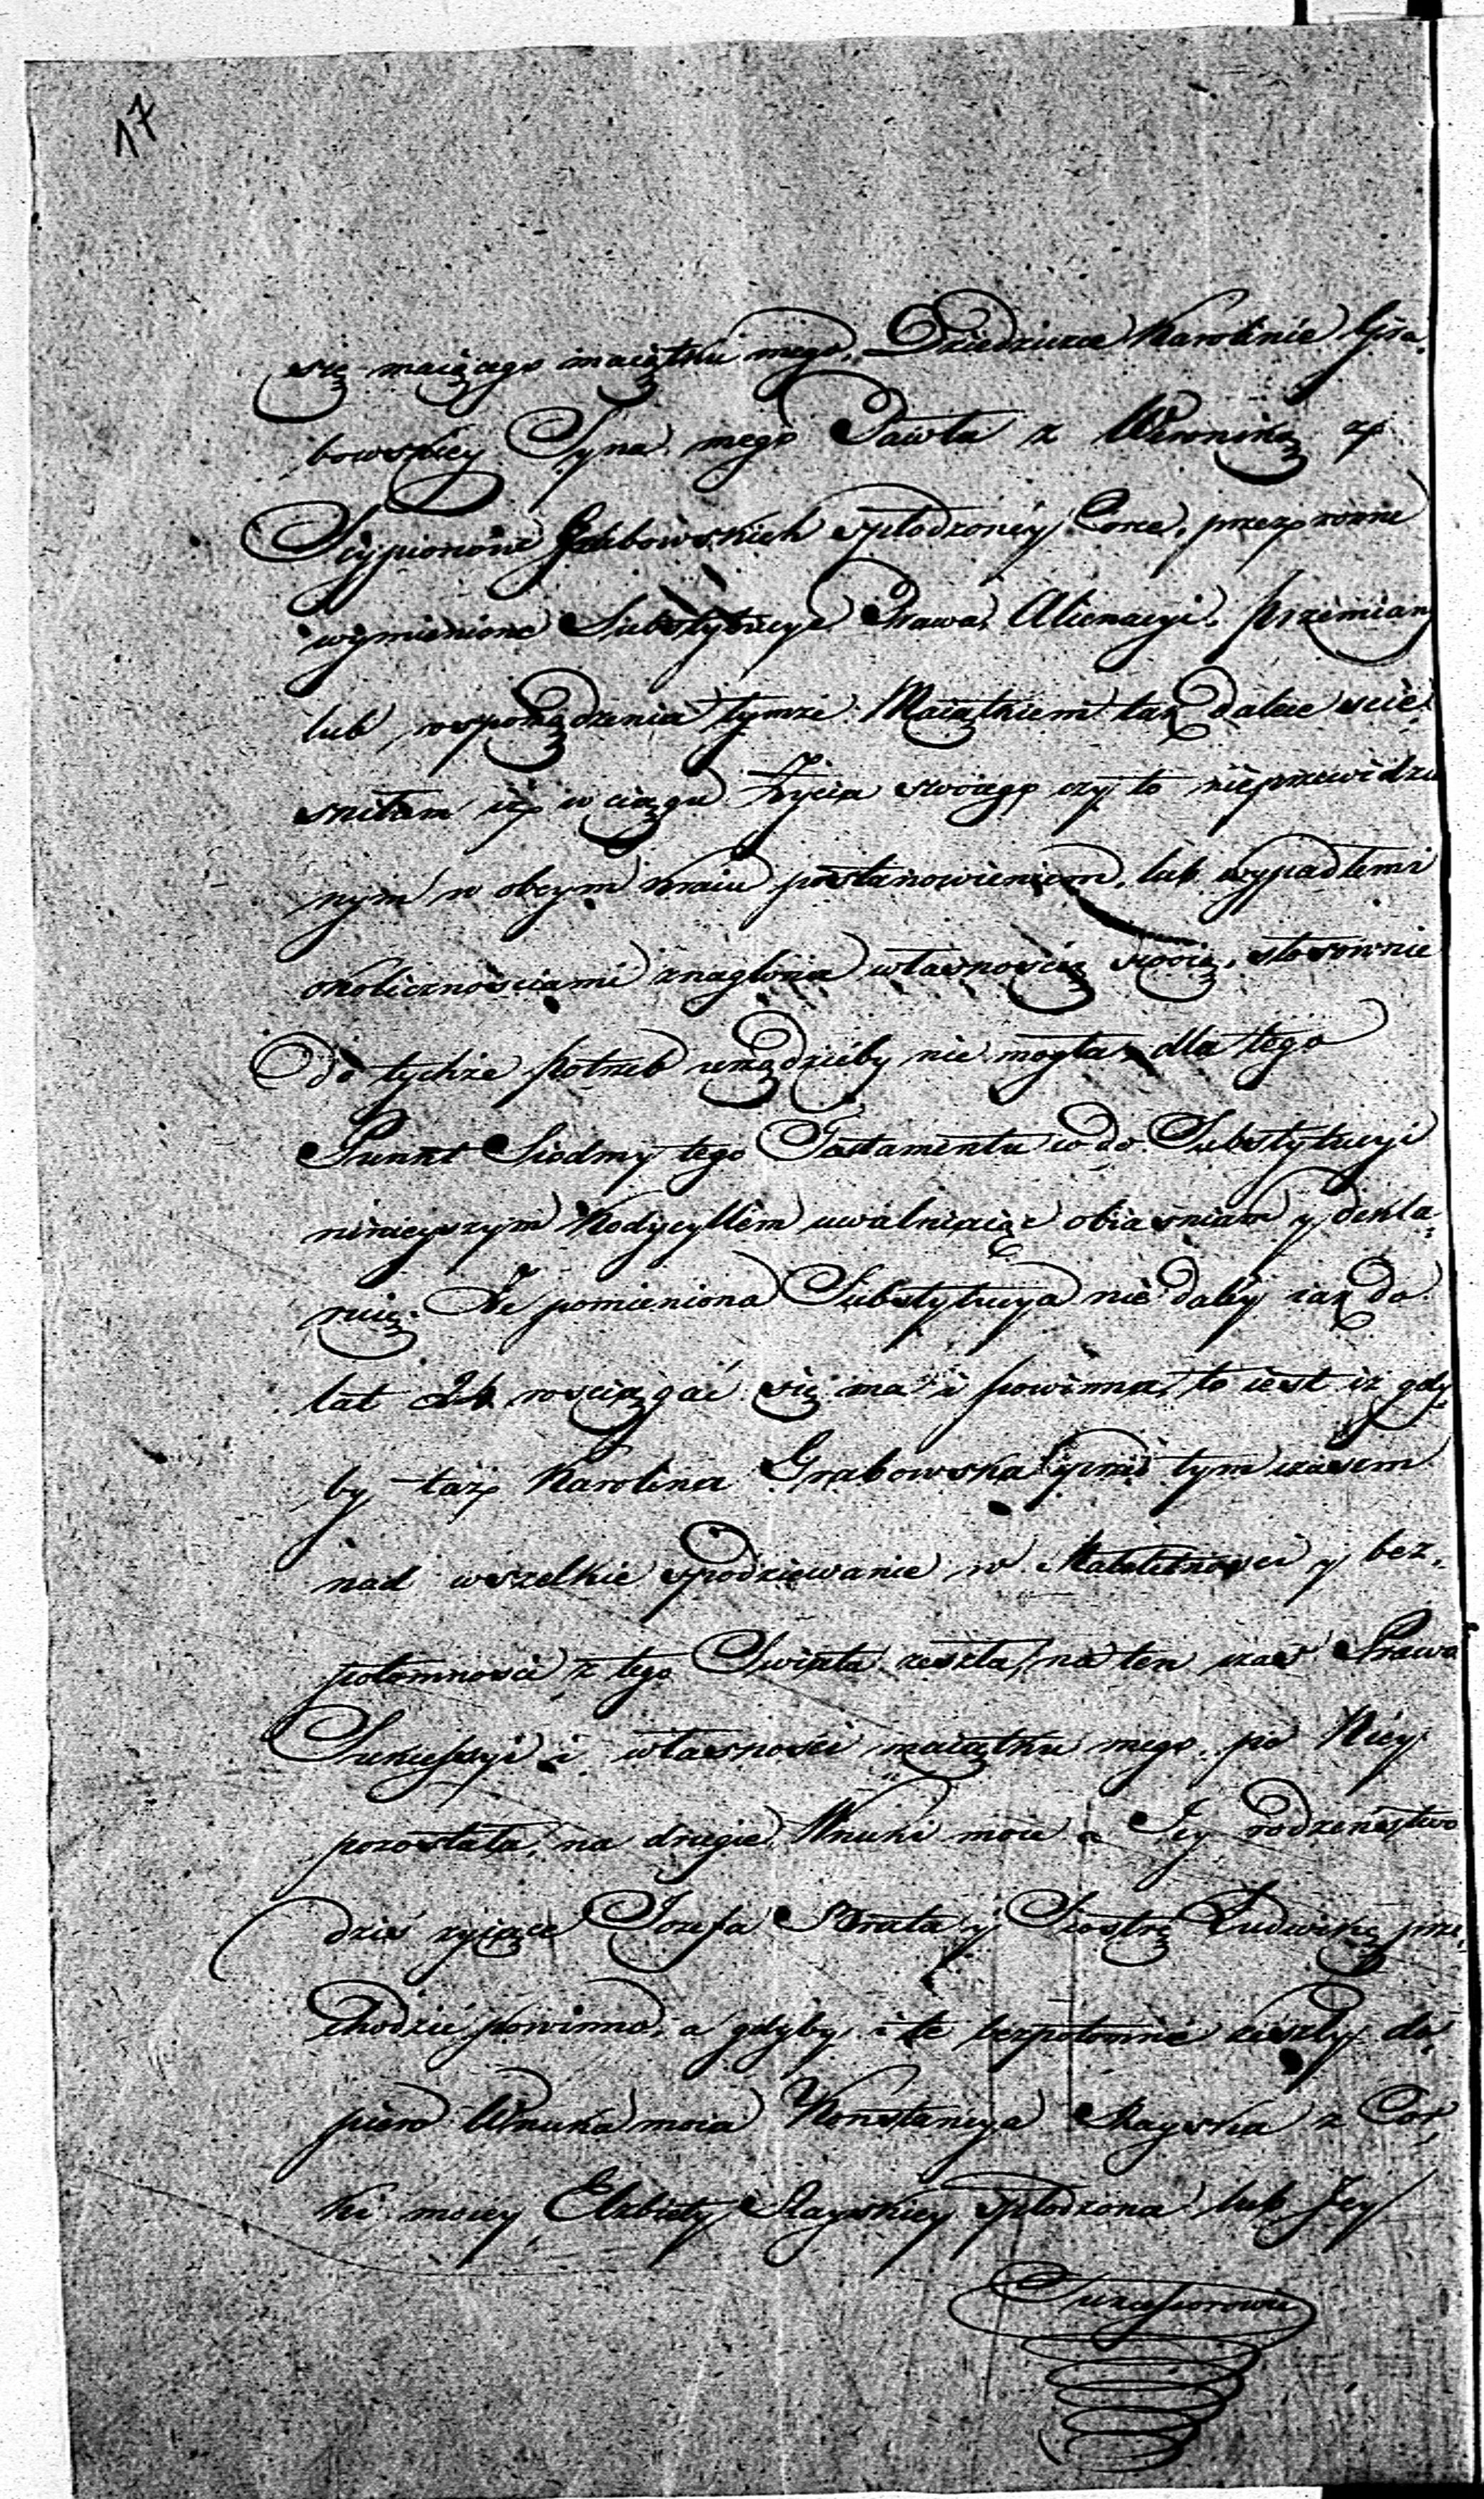 17
się maiącego maiątku mego, Dziedziczce Karolinie Gra-
bowskiey Syna mego Pawła z Weroniką z
Scypionów Grabowskich spłodzoney Corce, przez rożne
wymienione Substytucye Prawa, Alienacyi, przemiany
lub rosporządzenia tymże Maiątkiem tak dalece ście-
sniłam iż w ciągu Życia swoiego czy to nieprzewidzia
nym w obcym kraiu postanowieniem, lub wypadłemi
okolicznościami znaglona własnością swoią, stosownie
do tychże potrzeb urządzićby nie mogła, dla tego
Punkt Siodmy tego Testamentu co do Substytucyi
ninieyszym Kodycyllem uwalniaiąc obiaśniam y dekla-
ruię. Że pomieniona Substytucya nie daley iak do
lat 24 rosciągać się ma i powinna, to iest iż gdy-
by taż Karolina Grabowska przed tym czasem
nad wszelkie spodziewanie w Małoletności y bez-
potomności z tego Swiata zeszła, na ten czas Prawo
Sukcessyi i własności maiątku mego po Niey
pozostała, na drugie Wnuki moie a Jey rodzeństwo
dziś żyiące Jozefa Brata y Siostrę Ludwikę prze-
chodzić powinno, a gdyby i te bezpotomnie zeszły do-
piero Wnuka moia Konstancya Rayska z Cor-
ki moiey Elżbiety Rayskiey spłodzona lub Jey
Sukcessorowie